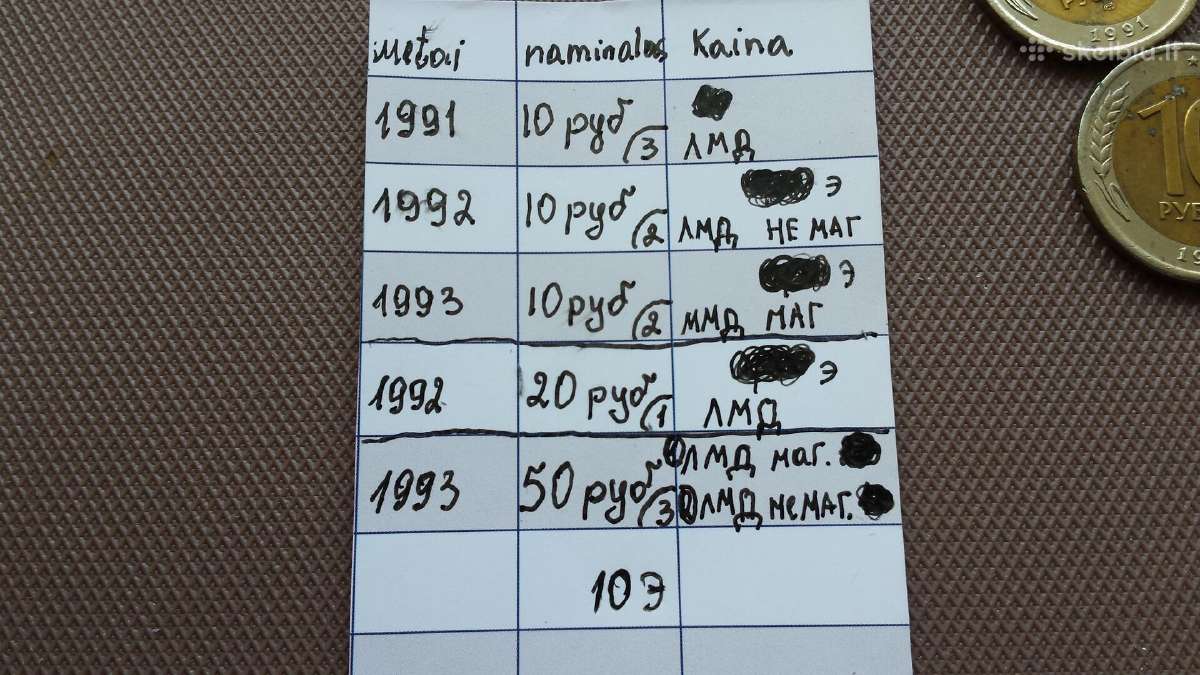 metai naminalas Kaina
1991 10 руб 3 ЛМД
1992 10 руб 2 Э
ЛМД НЕ МАГ
1993 10 руб 2 Э
ММД МАГ
1992 20 руб 1 Э
ЛМД
1993 50 руб 3 ЛМД маг.
ЛМД не маг.
10 Э
1991
skelbiu.lt
10